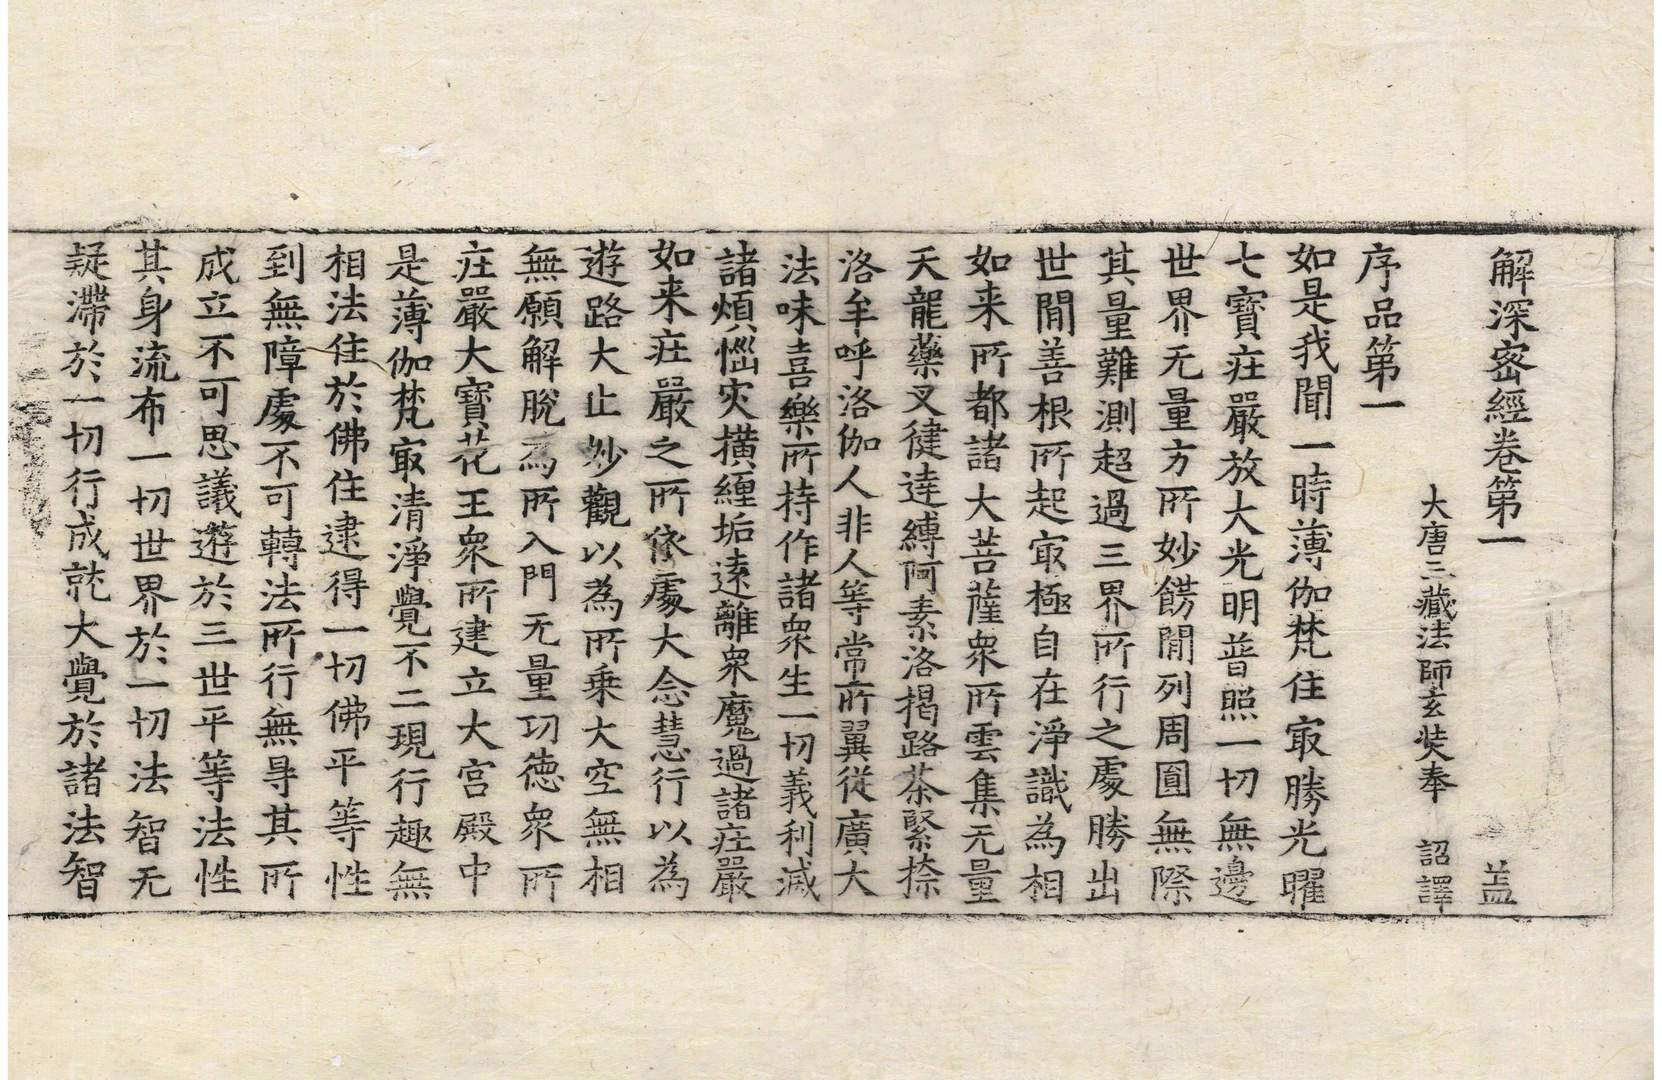 解深密經卷第一　盖
大唐三藏法師玄奘奉　詔譯
序品第一
如是我聞一時薄伽梵住㝡勝光曜
七寶庄嚴放大光明普照一切無邊
世界无量方所妙餝閒列周圓無際
其量難測超過三界所行之處勝出
世閒善根所起㝡極自在淨識為相
如来所都諸大菩薩衆所雲集无量
天龍藥叉健達縛阿素洛揭路荼緊捺
洛牟呼洛伽人非人等常所翼從廣大
法味喜樂所持作諸衆生一切義利滅
諸煩惱灾橫纏垢遠離衆魔過諸庄嚴
如来庄嚴之所依處大念慧行以為
遊路大止妙觀以為所乘大空無相
無願解脫為所入門无量功德衆所
庄嚴大寶花王衆所建立大宮殿中
是薄伽梵㝡清淨覺不二現行趣無
相法住於佛住逮得一切佛平等性
到無障處不可轉法所行無㝵其所
成立不可思議遊於三世平等法性
其身流布一切世界於一切法智无
疑滯於一切行成就大覺於諸法智